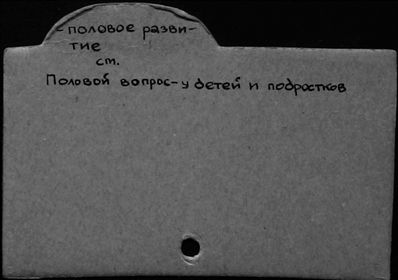 - половое разви-
тие
см.
Половой вопрос - у детей и подростков